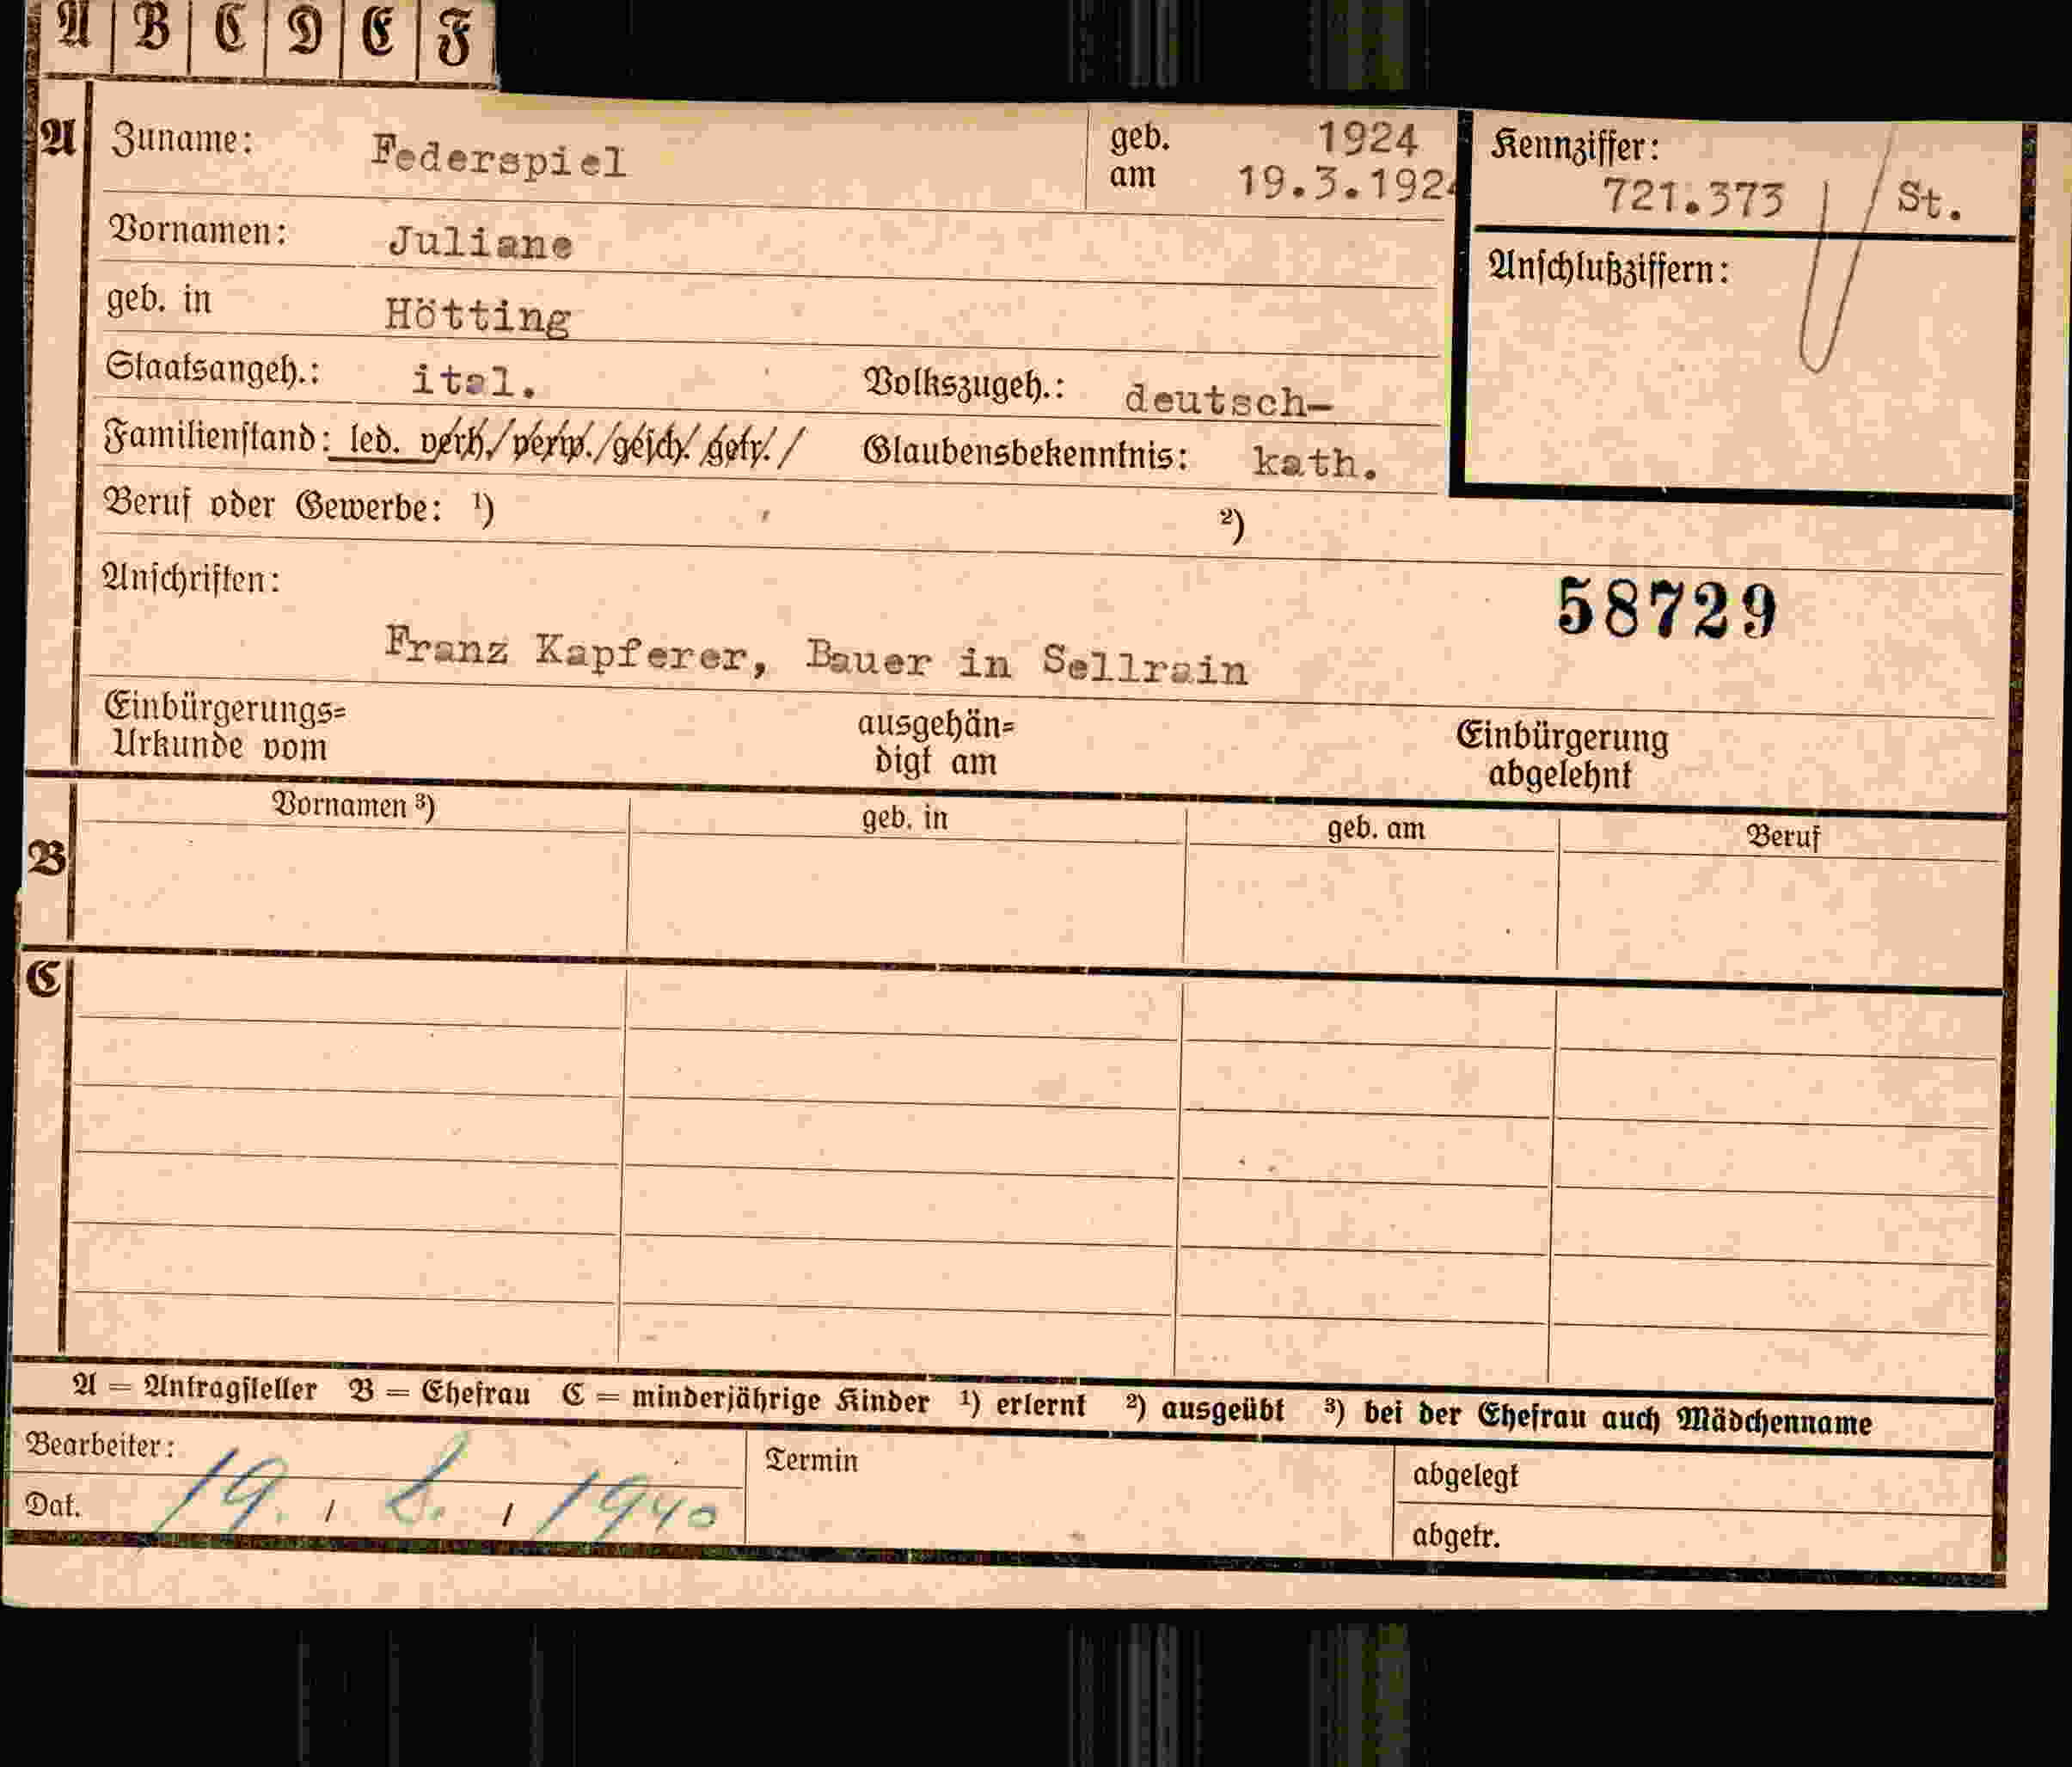 A B C D E F
A Zuname: Federspiel geb. am 1924 19.3.1924 Kennziffer: 721.373 St.
Vornamen: Juliane
Anschlußziffern:
geb. in Hötting
Staatsangeh.: ital. Volkszugeh.: deutsch-
Familienstand: led. verh./verw./gesch. getr./ Glaubensbekenntnis: kath.
Beruf oder Gewerbe: ¹) ²)
Anschriften: 58729
Franz Kapferer, Bauer in Sellrain
Einbürgerungs= ausgehän= Einbürgerung
Urkunde vom digt am abgelehnt
Vornamen ³) geb. in geb. am Beruf
B
C
A = Antragsteller B = Ehefrau C = minderjährige Kinder ¹) erlernt ²) ausgeübt ³) bei der Ehefrau auch Mädchenname
Bearbeiter: Termin abgelegt
Dat. 19. 1940 abgetr.